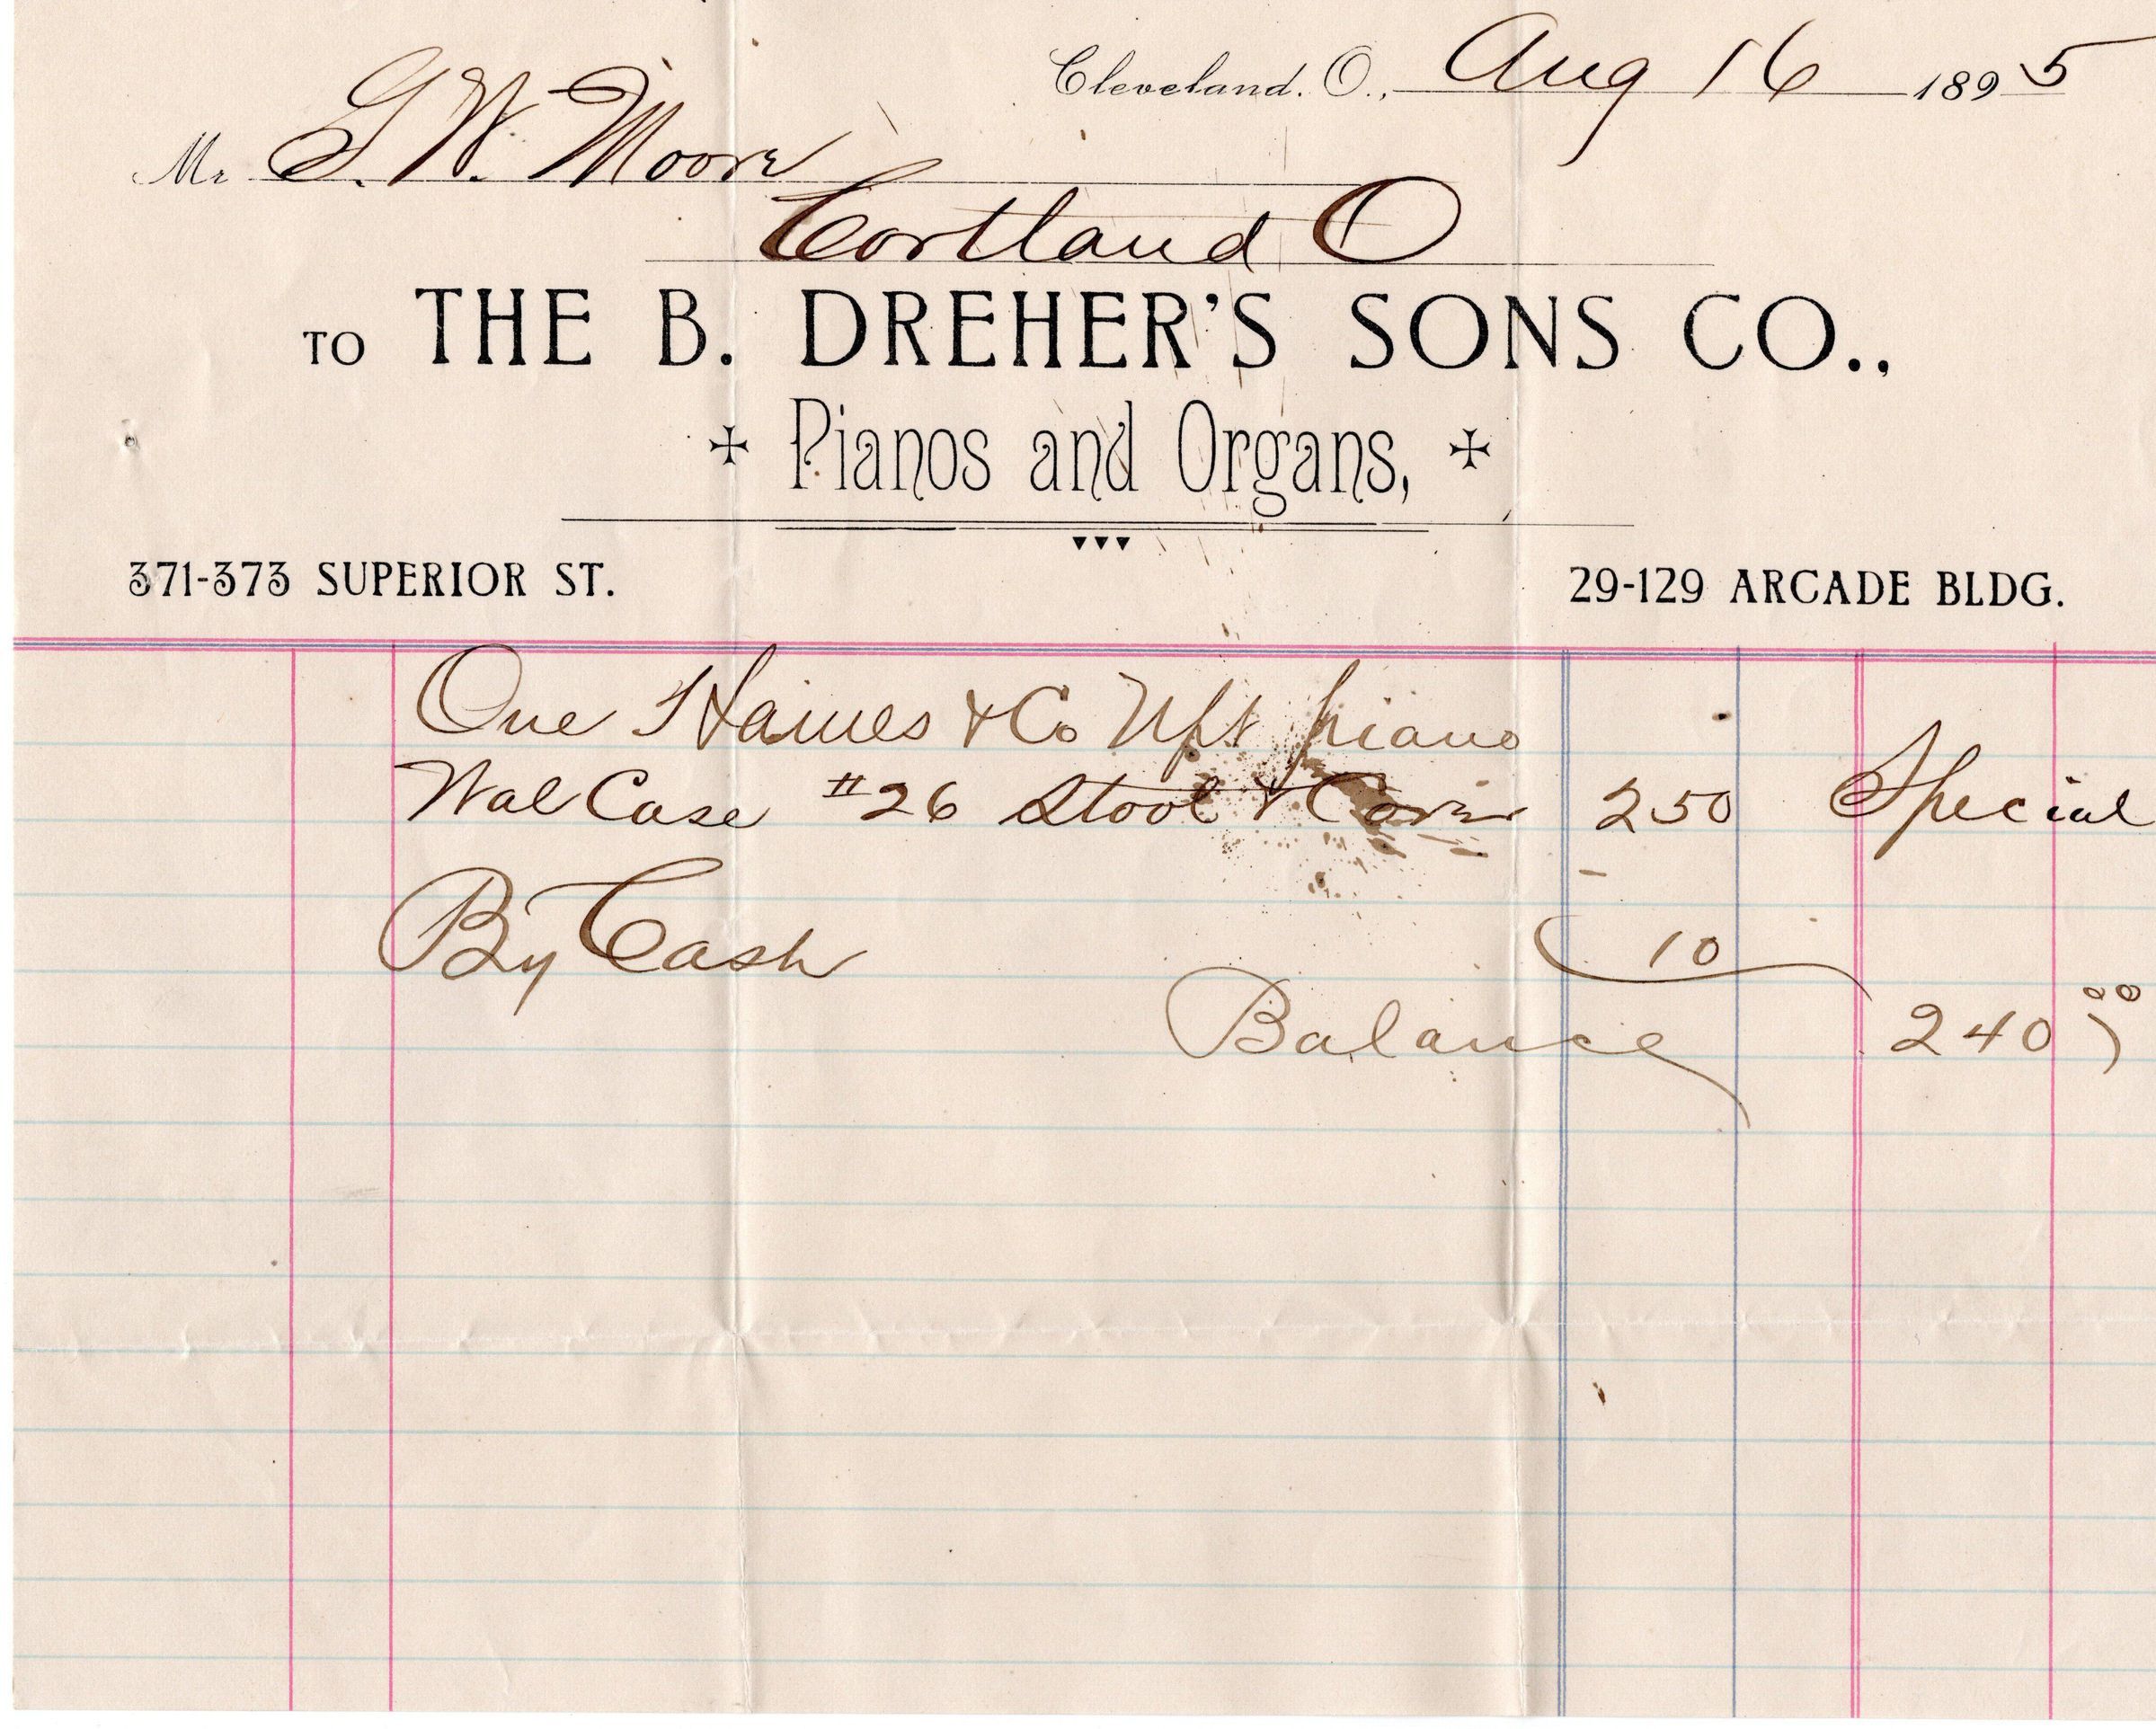 Cleveland. O., Aug 16 1895
Mr G. W. Moore
Cortland O
TO THE B. DREHER'S SONS CO.,
Pianos and Organs,
371-373 SUPERIOR ST. 29-129 ARCADE BLDG.
One Haines & Co Upt piano
Wal Case #26 Stool & Cover 250 Special
By Cash 10
Balance 240 00